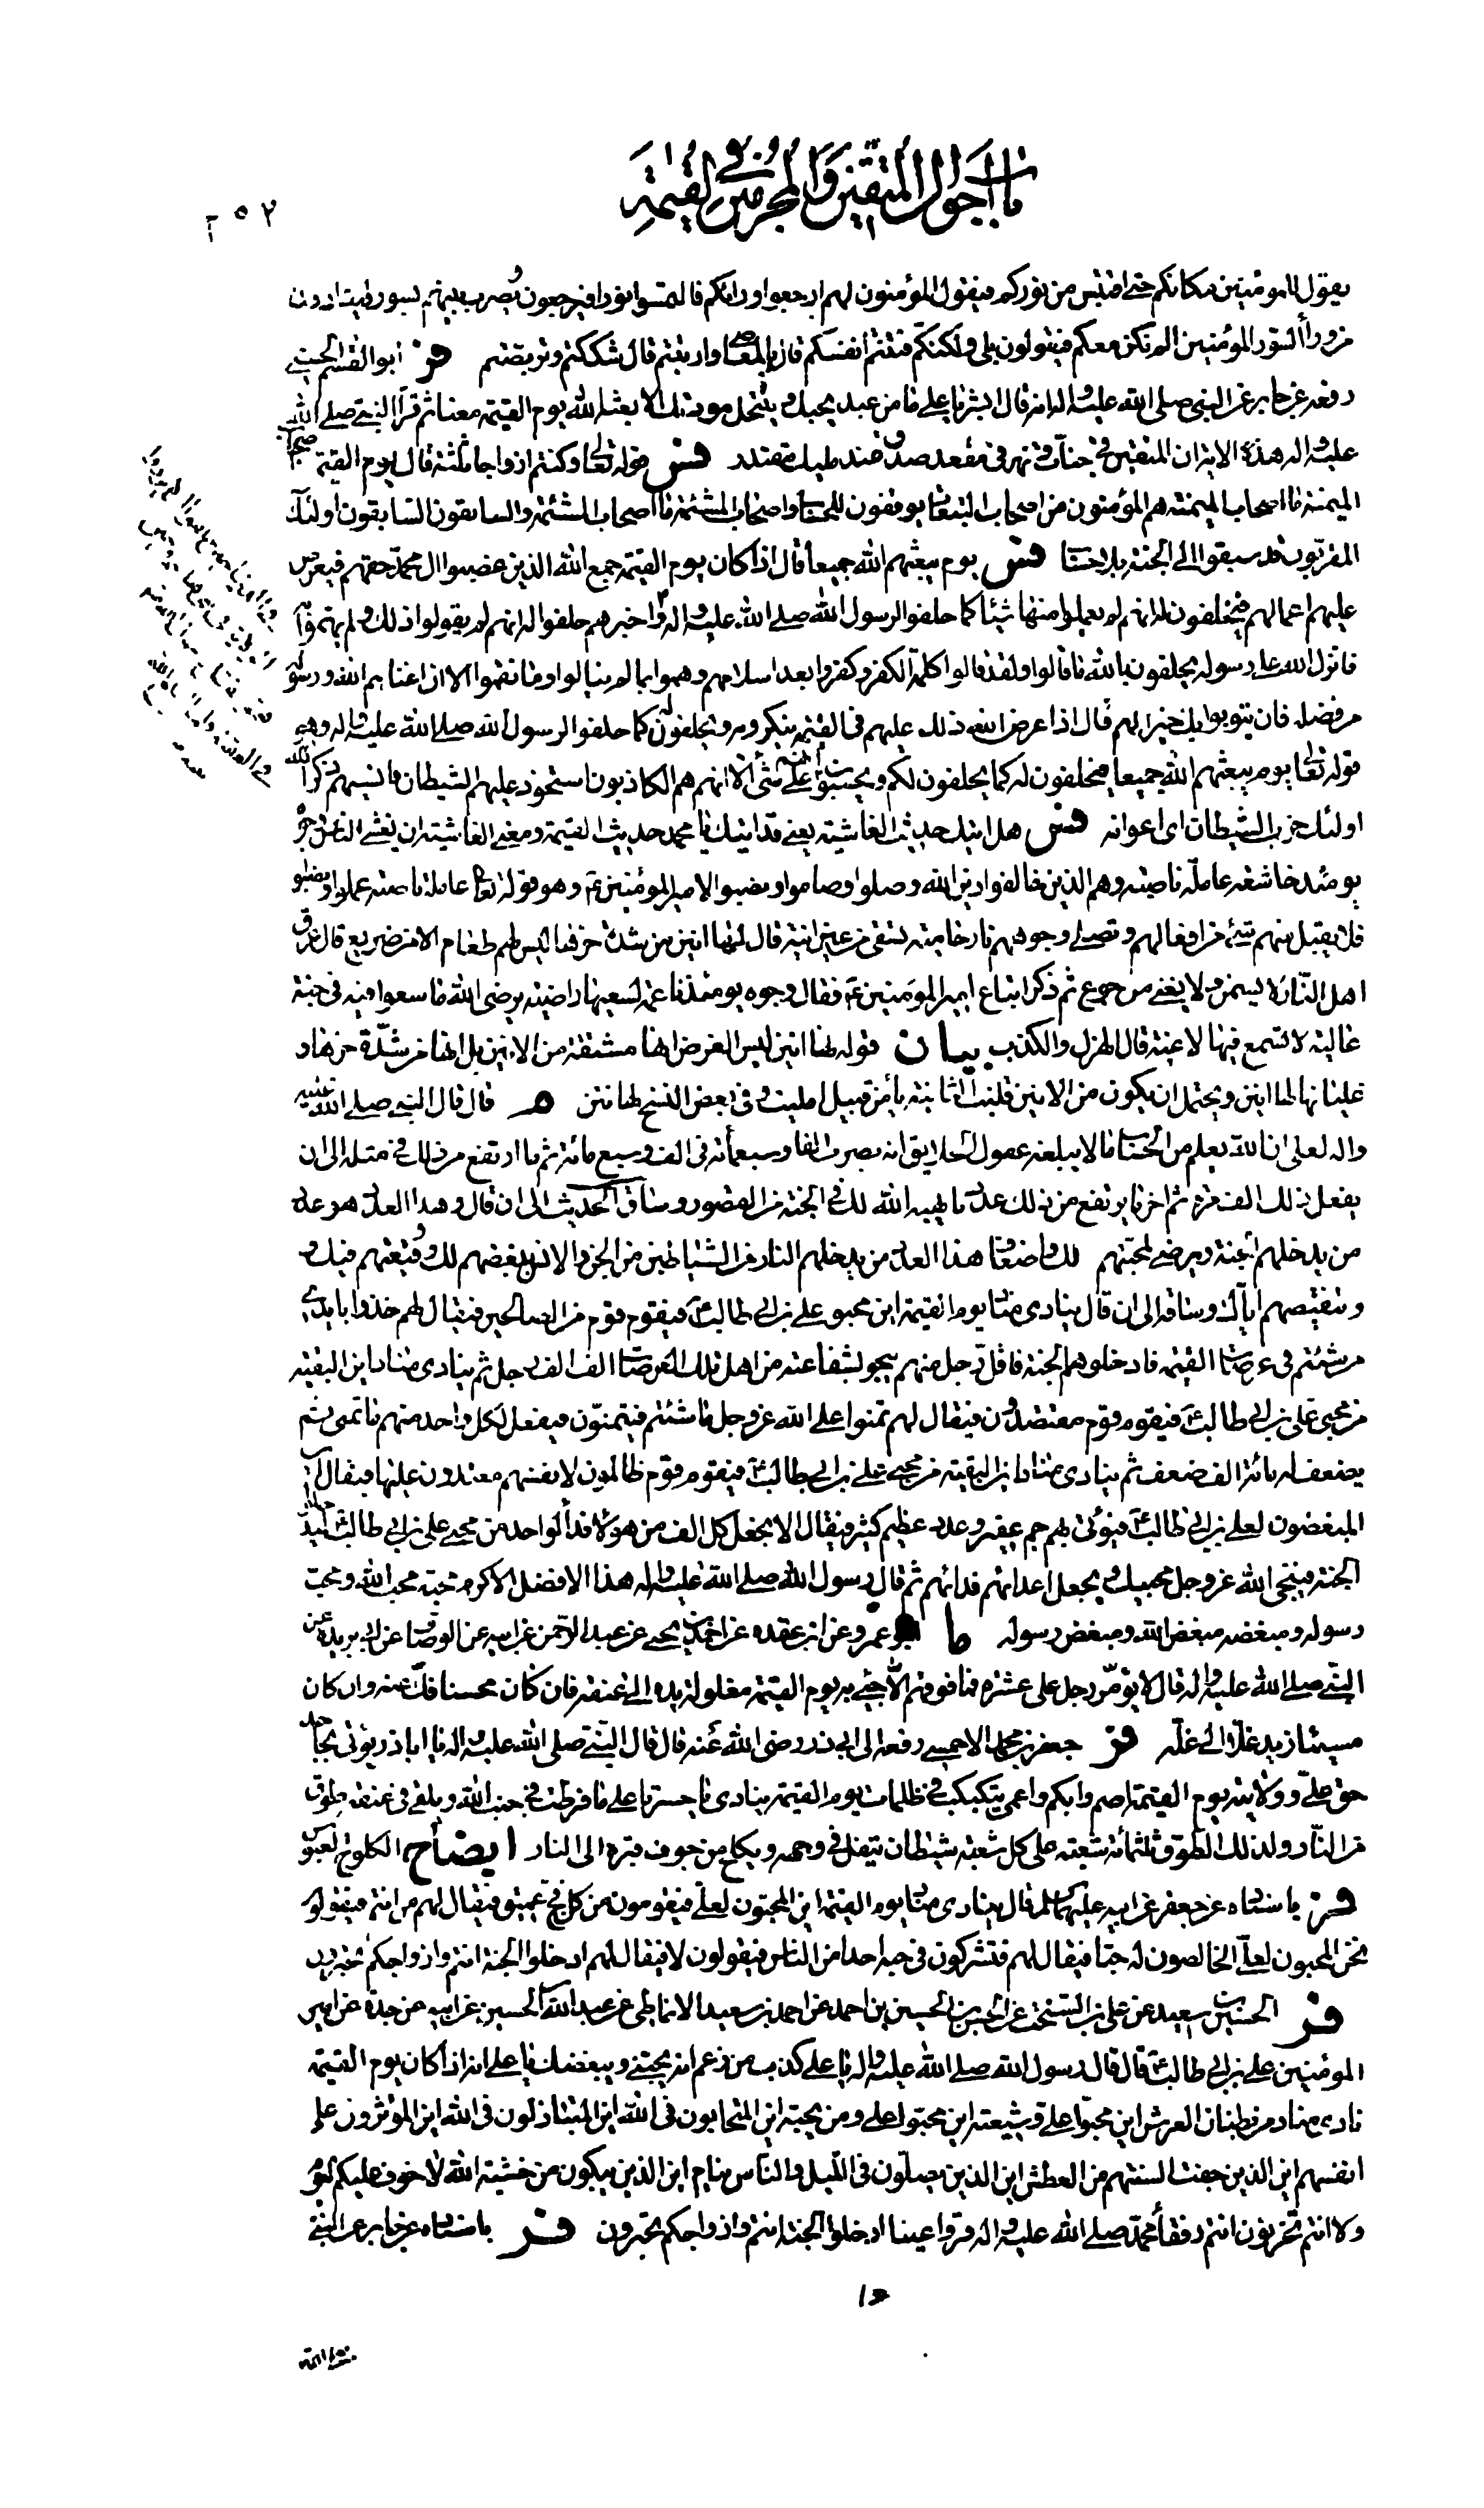 باب احوال المتقين والمجرمين في القيمة
٢٥٢
يقول للمؤمنين مكانكم حتى اقتبس من نوركم فيقول المؤمنون لهم ارجعوا وراءكم فالتمسوا نورا فيرجعون فيضرب بينهم بسور فينادون
من وراء السور المؤمنين الم نكن معكم فيقولون بلى ولكنكم فتنتم انفسكم قال بالمعاصي وارتبتم قال شككتم وتربصتم فر ابو القسم الحسني
رفعه عن جابر عن النبي صلى الله عليه واله انه قال ابشر يا علي ما من عبد يحبك وينتحل مودتك الا بعثه الله يوم القيمة معنا ثم قرأ النبي صلى الله
عليه واله هذه الاية ان المتقين في جنات ونهر في مقعد صدق عند مليك مقتدر فس قوله تعالى وكنتم ازواجا ثلثة قال يوم القيمة فاصحاب
الميمنة ما اصحاب الميمنة هم المؤمنون من اصحاب التبعات يوقفون للحساب واصحاب المشئمة ما اصحاب المشئمة والسابقون السابقون اولئك
المقربون قد سبقوا الى الجنة بلا حساب فس يوم يبعثهم الله جميعا قال اذا كان يوم القيمة جمع الله الذين غصبوا ال محمد حقهم فيعرض
عليهم اعمالهم فيحلفون له انهم لم يعملوا منها شيئا كما حلفوا لرسول الله صلى الله عليه واله واخبرهم حلفوا له انهم لم يقولوا ذلك ولم يهموا به
فانزل الله على رسوله يحلفون بالله ما قالوا ولقد قالوا كلمة الكفر وكفروا بعد اسلامهم وهموا بما لم ينالوا وما نقموا الا ان اغناهم الله ورسوله
من فضله فان يتوبوا يك خيرا لهم قال اذا عرض الله ذلك عليهم في القيمة ينكرونه ويحلفون له كما حلفوا لرسول الله صلى الله عليه واله وهو
قوله تعالى يوم يبعثهم الله جميعا فيحلفون له كما يحلفون لكم ويحسبون انهم على شئ الا انهم هم الكاذبون استحوذ عليهم الشيطان فانسيهم ذكر الله
اولئك حزب الشيطان اي اعوانه فس هل اتيك حديث الغاشية يعني قد اتيك يا محمد حديث القيمة ومعنى الغاشية ان يغشي الناس وجوه
يومئذ خاشعة عاملة ناصبة وهم الذين خالفوا دين الله وصلوا وصاموا ونصبوا لامير المؤمنين ع وهو قوله تعالى عاملة ناصبة عملوا ونصبوا
فلا يقبل منهم شئ من افعالهم وتصلى وجوههم نارا حامية تسقى من عين انية قال لها انين من شدة حرها ليس لهم طعام الا من ضريع قال عرق
اهل النار لا يسمن ولا يغني من جوع ثم ذكر اتباع امير المؤمنين ع فقال وجوه يومئذ ناعمة لسعيها راضية يرضى الله ما سعوا فيه في جنة
عالية لا تسمع فيها لاغية قال الهزل والكذب بيان قوله لها انين ليس الغرض انها مشتقة من الانين بل انها من شدة حرها و
غليانها لها انين ويحتمل ان يكون من الانين قلبت الثانية ياء من قبيل امليت وفي بعض النسخ لها نتن م قال قال النبي صلى الله عليه
واله لعلي ان الله يعلم من الحساب ما لا يبلغه عقول الخلايق انه يضرب الفا وسبعمأة في الف وسبع مائة ثم ما ارتفع من ذلك في مثله الى ان
يفعل ذلك الف مرة ثم اخر ما يرتفع من ذلك عدد ما يهبه الله لك في الجنة من القصور وساق الحديث الى ان قال وهذا العدد هو عدد
من يدخلهم الجنة ويرضى لمحبتهم لك واضعاف هذا العدد من يدخلهم النار من الشياطين من الجن والانس ببغضهم لك ووقيعتهم فيك و
وتنقيصهم اياك وساقه الى ان قال ينادي مناد يوم القيمة اين محبو علي بن ابي طالب ع فيقوم قوم من الصالحين فيقال لهم خذوا بايدي
من شئتم في عرصات القيمة فادخلوهم الجنة فاقل رجل منهم ينجو بشفاعته من اهل تلك العرصات الف الف رجل ثم ينادي مناد اين البقية
من محبي علي بن ابي طالب ع فيقوم قوم مقتصدون فيقال لهم تمنوا على الله عز وجل ما شئتم فيتمنون فيفعل لكل واحد منهم ما تمنى ثم
يضعف له مائة الف ضعف ثم ينادي مناد اين البقية من محبي علي بن ابي طالب ع فيقوم قوم ظالمون لانفسهم معتدون عليها فيقال اين
المبغضون لعلي بن ابي طالب ع فيؤتى بهم جم غفير وعدد عظيم كثير فيقال الا نجعل كل الف من هؤلاء فداء لواحد من محبي علي بن ابي طالب ع ليدخلوا
الجنة فينجي الله عز وجل محبيك ويجعل اعدائهم فدائهم ثم قال رسول الله صلى الله عليه واله هذا الافضل الاكرم محبه محب الله ومحب
رسوله ومبغضه مبغض الله ومبغض رسوله ما ابو عمرو عن ابن عقدة عن احمد بن يحيى عن عبد الرحمن عن ابيه عن الوصاف عن ابي بريدة عن
النبي صلى الله عليه واله قال لا يؤمر رجل على عشرة فما فوقهم الا جئ به يوم القيمة مغلولة يده الى عنقه فان كان محسنا فك عنه وان كان
مسيئا زيد غلا الى غله فر جعفر بن محمد الاحمسي رفعه الى ابي ذر رضي الله عنه قال قال النبي صلى الله عليه واله يا ابا ذر يؤتى بجاحد
حق علي وولايته يوم القيمة اصم وابكم واعمى يتكبكب في ظلمات يوم القيمة ينادي يا حسرتا على ما فرطت في جنب الله ويلقى في عنقه طوق
من النار ولذلك الطوق ثلثمائة شعبة على كل شعبة شيطان يتفل في وجهه ويكلح من جوف قبره الى النار ايضاح الكلوح العبوس
فر باسناده عن جعفر عن ابيه عليهما السلم قال ينادي مناد يوم القيمة اين المحبون لعلي فيقومون من كل فج عميق فيقال لهم من انتم فيقولون
نحن المحبون لعلي الخالصون له حبا فيقال لهم فتشركون في حبه احدا من الناس فيقولون لا فيقال لهم ادخلوا الجنة انتم وازواجكم تحبرون
فر الحسين بن سعيد عن علي بن السخت عن الحسن بن الحسين بن احمد عن احمد بن سعيد الانماطي عن عبد الله بن الحسين عن ابيه عن جده عن امير
المؤمنين علي بن ابي طالب ع قال قال رسول الله صلى الله عليه واله يا علي كذب من زعم انه يحبني ويبغضك يا علي انه اذا كان يوم القيمة
نادى مناد من بطنان العرش اين محبوا علي وشيعته اين محبوا علي ومن يحبه اين المتحابون في الله اين المتباذلون في الله اين المؤثرون على
انفسهم اين الذين جفت السنتهم من العطش اين الذين يصلون في الليل والناس نيام اين الذين يبكون من خشية الله لا خوف عليكم اليوم
ولا انتم تحزنون انتم رفقاء محمد صلى الله عليه واله قروا عينا ادخلوا الجنة انتم وازواجكم تحبرون فر باسناده عن جابر عن النبي